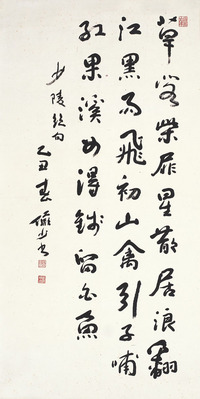 草閣柴扉星散居浪翻
江黑雨飛初山禽引子哺
紅果溪女得錢留白魚
少陵絕句
乙丑春儼少書